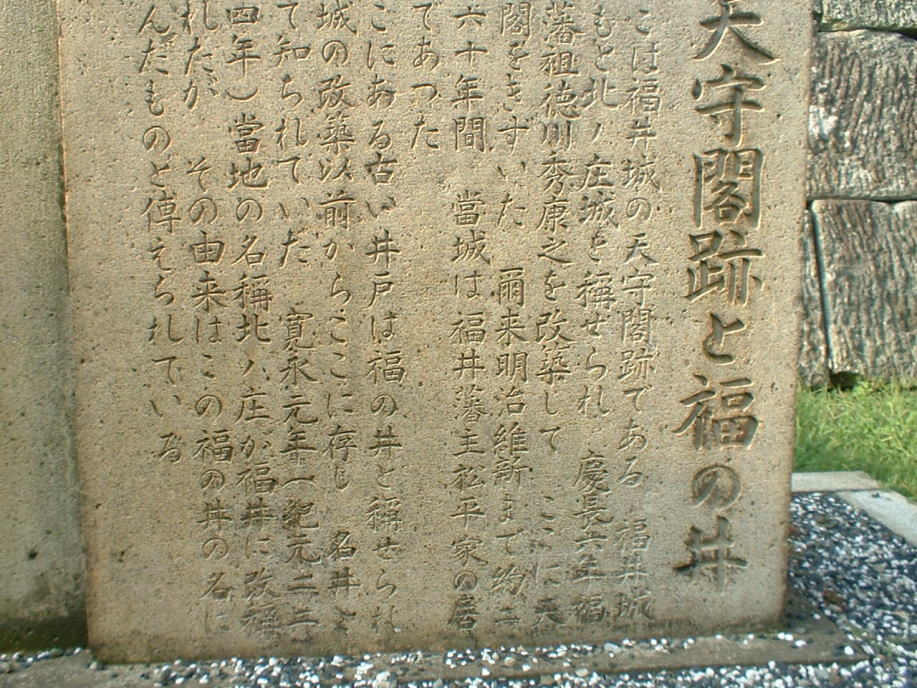 天守閣跡と福の井
こは福井城の天守閣跡である 福井城
もと北ノ庄城と稱せられ 慶長六年福
藩祖徳川秀康之を改築して ここに天
閣をきずいた 爾来明治維新まで約二
六十年間 當城は福井藩主松平家の居
であつた
こにある古い井戸は福の井と稱せられ
城の改築以前からここに存し 名井と
て知られていた 寛永元年(紀元二二
四年)當地の名稱北ノ庄が福井に改稱
れたが その由来はこの福の井の名に
んだものと傳えられている